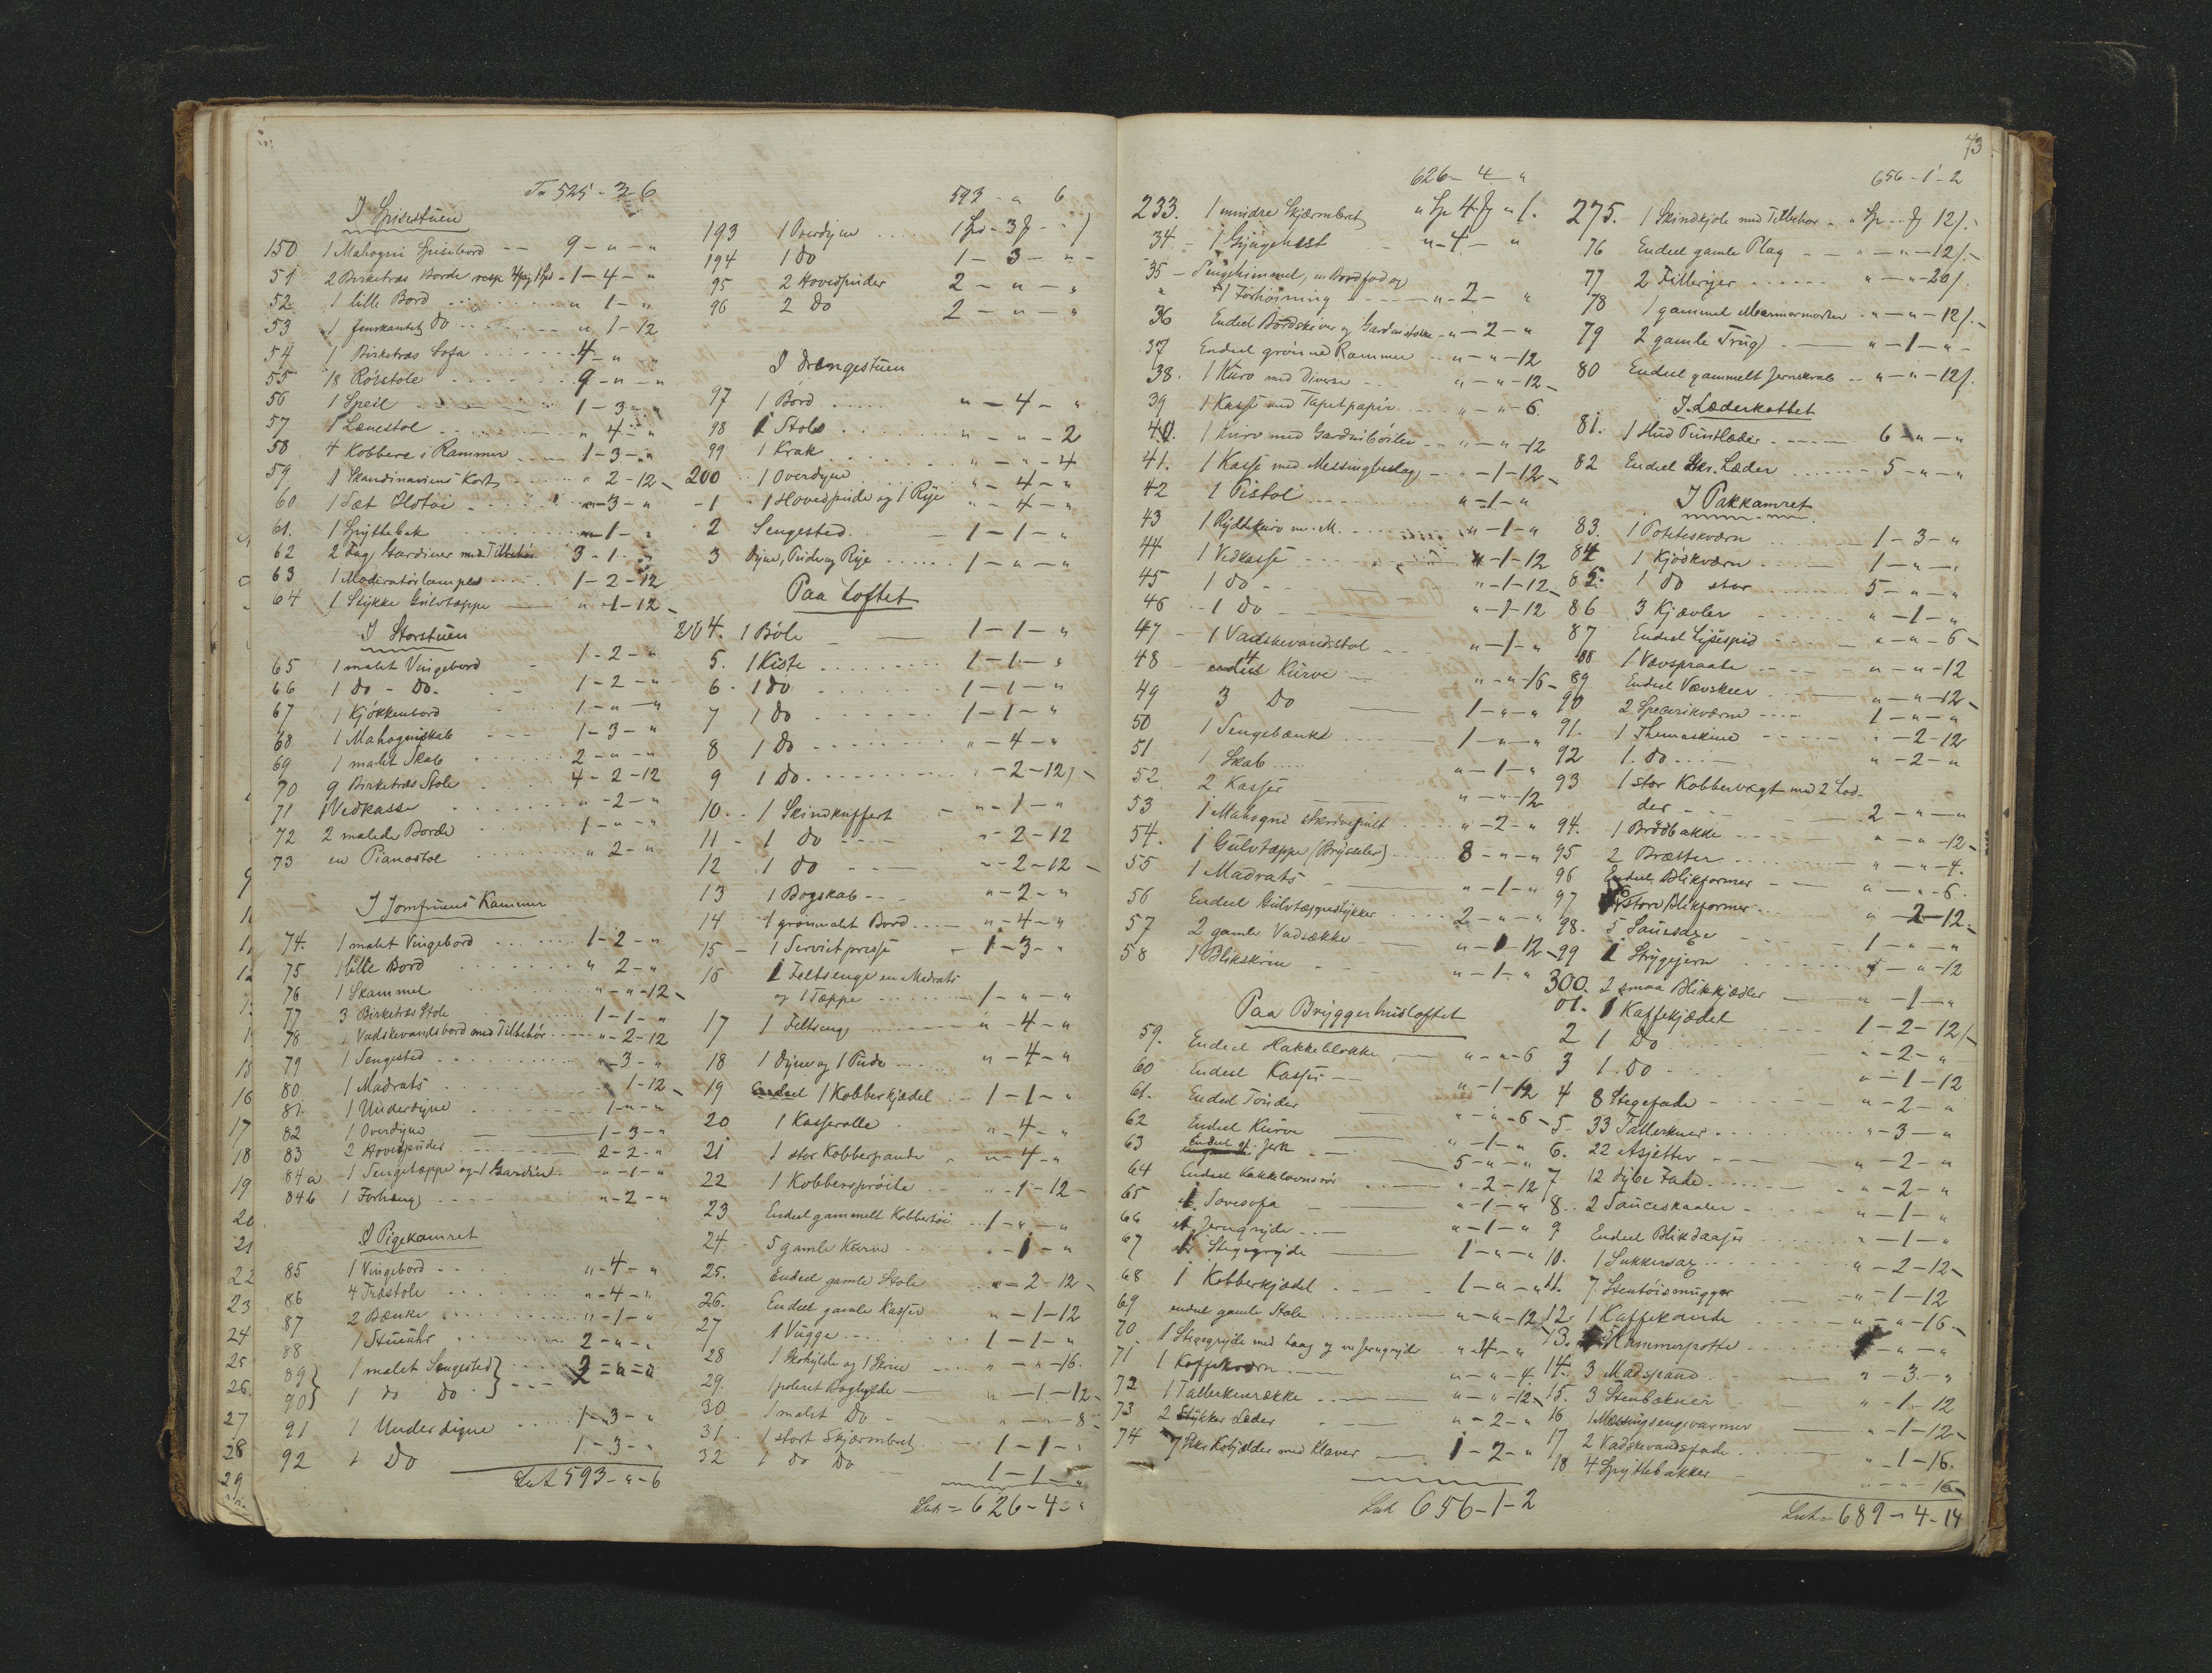 Tr 525 - 3 - 6
I Spisestuen
150 1 Mahogni Spisebord - - 9 - " - "
51 2 Birketræs Borde resp. - 1 - 4 - "
52 1 lille Bord - - - " 1 - "
53 1 femkantet do - - - " 1 - 12
54 1 Birketræs Sofa - - - 4 - " - "
55 18 Rörstole - - - 9 - " - "
56 1 Speil - - - 1 - 3 - "
57 1 Lænestol - - - " 4 - "
58 4 Kobbere i Rammer - - 1 - 3 - "
59 1 Skandinaviens Kort - - - " 2 - 12
60 1 Sæt Ildtöi - - - " - 3 - "
61. 1 Spyttebak - - - " - 1 - "
62 2 Fag Gardiner med Tilbehör 3 - 1 - "
63 1 Moderatörlampe - - - 1 - 2 - 12
64 1 Stykke Gulvtæppe - " - 1 - 12
I Storstuen
65 1 malet Vingebord - 1 - 2 - "
66 1 do - do - - 1 - 2 - "
67 1 Kjökkenbord - 1 - " - "
68 1 Mahogniskab - - - 1 - 3 - "
69 1 malet Skab - - - 2 - " - "
70 9 Birketræs Stole - - 4 - 2 - 12
71 1 Vedkasse - - - " - 2 - "
72 2 malede Borde - - - 1 - " - "
73 en Pianostol - - - " 2 - "
I Jomfruens Kammer
74. 1 malet Vingebord - - - 1 - 2 - "
75 1 lille Bord - - - " 2 - "
76 1 Skammel - - - " - " - 12
77 3 Birketræs Stole - - - 1 - 1 - "
78 1 Vadskevandsbord med Tilbehör - - " - 2 - 12
79 1 Sengested - - - " - 3 - "
80 1 Madrats - - - " 1 - 12
81. 1 Underdyne - - - 1 - " - "
82 1 Overdyne - - - 1 - 3 - "
83 2 Hovedpuder - - - 2 - 2 - "
84 a 1 Sengetæppe og 1 Gardin - - " - 1 - "
84 b 1 Forhæng - - - " - 2 - "
I Pigekamret
85 1 Vingebord - - - " - 4 - "
86 4 Træstole - - - " - 4 - "
87 2 Bænke - - - " - 1 - "
88 1 Stueuhr - - - 2 - " - "
89 1 malet Sengested - - - 2 = " = "
90 1 do do
91 1 Underdyne - - - 1 - 3 - "
92 1 Do 1 - 3 - "
Lat 593 - " - 6
593 - " 6
193 1 Overdyne - - - 1 Sp - 3 - "
194 1 do 1 - 3 - " -
95 2 Hovedpuder 2 - " - "
96 2 Do 2 - " - "
I Drengestuen
97 1 Bord - - - " - 4 - "
98 1 Stole - - - " - " - 2
99 1 Krak - - - " - " - 4
200 1 Overdyne - - - " - 4 - "
- 1 1 Hovedpude og 1 Rye " - 4 - "
2 Sengested - 1 - 1 - "
3 Dyne, Pude og Rye - - - 1 - " - "
Paa Loftet
204. 1 Böle - 1 - 1 - "
5. 1 Kiste - - - 1 - 1 - "
6. 1 do - - - 1 - 1 - "
7 1 do - - - 1 - 1 - "
8 1 do - - - " - 4 - "
9 1 do - - - " - 2 - 12
10. 1 Skindkuffert - " - 1 - "
11 - 1 do - - - " - 2 - 12
12 1 do - - - " - 2 - 12
13 1 Bogskab - - - " - 2 - "
14 1 grönmalet Bord - - " - 4 - "
15 - 1 Servietpresse - 1 - 3 - "
16 1 Feltsenge en Madrats
og 1 Tæppe - - - 1 - " - "
17 1 Feltseng - - - " - 4 - "
18 1 Dyne og 1 Pude - - " - 4 - "
19 Endeel 1 Kobberkjedel - - 1 - 1 - "
20 1 Kasserolle - - - " - 4 - "
21 1 stor Kobberpande - " - 4 - "
22 1 Kobberspröite - - " - 1 - 12 -
23 Endeel gammelt Kobbertöi - 1 - " - "
24 5 gamle Kurve - - " - 1 - "
25. Endeel gamle Stole - - " - 2 - 12
26. Endeel gamle Kasser " - 1 - 12
27 1 Vugge - - - 1 - 1 - "
28 1 Hylde og 1 Skrin - - " - " - 16.
29. 1 poleret Boghylde - " - 1 - 12
30 1 malet Do - " - " - 8
31. 1 stort Skjærmbret - 1 - 1 - "
32 1 do do 1 - 1 - "
Lat = 626 - 4 - "
626 - 4 - "
233. 1 mindre Skjærmbret " Sp 4 " -
34. 1 Gyngehest - - " - 4 - "
35 - Sengehimmel, en Bordfod og
1 Forhöining - - - " - 2 - "
36 Endeel Bordskiver og Gardinstokke - " - 2 - "
37 Endeel grönne Rammer - - " - " - 12
38. 1 Kurv med Diverse - - - " - " - 12
39 1 Kasse med Tapetpapir - - " - " - 6.
40. 1 Kurv med Gardinböiler - - " - " - 12
41. 1 Kasse med Messingbeslag - " - 1 - 12
42 1 Pistol - - - " - 1 - "
43 1 Rydtekurv m. M. - - - " - 1 - "
44 1 Vedkasse - - - " - 1 - 12
45 1 do - - - " - 1 - 12
46 1 do - - - " - 1 - 12
47 1 Vadskevandsstol - - - " - 1 - "
48 endeel 4 Kurve - - " - " - 16
49 3 Do - 1 - " - "
50 1 Sengebænk - - 1 - " - "
51 1 Skab - - - " - 1 - "
52. 2 Kasser " - " - 12
53 1 Mahogni Skrivepult - - - " - 2 - "
54. 1 Gulvtæppe (Brysseler) - - 8 - " - "
55 1 Madrats - " - 1 - "
56 Endeel Gulvtæppestykker - - 2 - " - "
57 2 gamle Vadsække - " - 1 - 12
58 1 Blikskrin - - " - 1 - "
Paa Bryggerhusloftet
59. Endeel Hakkeblokke - " - " - 6
60 Endeel Kasser - - " - 1 - 12
61. Endeel Tönder " - " - 6
62 Endeel Kurve " - 1 - "
63 Endeel gl. Jern - - 5 - " - "
64 Endeel Kakkelovnsrör - - " - 2 - 12
65 1 Sovesofa " - 1 - "
66 1 Jerngryde - - " - 1 - "
67 1 Stegegryde - 1 - " - "
68 1 Kobberkjedel - - - 1 - " - "
69 endeel gamle Stole " - " - 12
70. 1 Stegegryde med Laag og en Jerngryde " - 4 - "
71 1 Kaffekværn - - " - " - 4
72 1 Tallerkenrække - - " - " - 12
73 2 Stykker Læder - " - 2 - "
74 7 Stkr Kobjælder med Klaver 1 - 2 - "
Lat 656 - 1 - 2
73
656 - 1 - 2
275. 1 Skindkjole med Tilbehör - " Sp - - 12
76 Endeel gamle Plag - - " - " - 12
77 2 Filleryer - - - " - " - 20
78 1 gammel Marmormorter - " - " - 12
79 2 gamle Trug - " - 1 - "
80 Endeel gammelt Jernskrab - - " - " - 12
I Læderkottet
81. 1 Hud Tuntlæder - - - 6 - " - "
82 Endeel Skr. Læder - - - 5 - " - "
I Pakkamret
83. 1 Poteteskværn - - - 1 - 3 - "
84 1 Kjödkværn - - - 1 - " - "
85. 1 do stor - - - 5 - " - "
86 3 Kjævler - - - " - 1 - "
87 Endeel Lysespid - - - " - " - 6
88 1 Vævspraate - - " - " - 12
89 Endeel Vævskeer - - - " - " - 12
90 2 Specerikværne - - - 1 - " - "
91. 1 Themaskine - - - " - 2 - 12
92 1. do - - - " - 2 - "
93 1 stor Kobbervægt med 2 Lod-
der - - 2 - " - "
94. 1 Brödbakke - - - " - " - 12
95 2 Brætter - - - " - " - 4.
96 Endeel Blikformer - " - " - 6.
97 6 store Blikformer - - " - 2 - 12
98. 5 Sauesaxe - - - 1 - " - "
99 1 Strygejern - - - " - " - 12
300. 2 smaa Blikkjedler - " - 1 - "
01. 1 Kaffekjedel - - - 1 - 2 - 12
2 1 Do - - - " - 2 - "
3 1. Do - - - " - 1 - 12
4 8 Stegefade - - - " - 2 - "
5. 33 Tallerkner - - - " - 3 - "
6. 22 Asjetter - - - " - 2 - "
7 12 dybe Fade - - - " - 2 - "
8. 2 Sauceskaaler - - - " - 1 - "
9 Endeel Blikdaaser - - " - 1 - "
10. 1 Sukkersax - - - " - 2 - 12
11. 7 Stentöismugger - - " - 1 - 12
12. 1 Kaffekande - - " - " - 16
13. Kammerpotte - - " - "
14. 3 Madspand - - - " - 3 - "
15. 3 Stenbakner - " - 1 - 12
16 1 Messingsengevarmer - " - 1 - 12
17 2 Vadskevandsfade - - " - 1 - 16.
18 4 Spyttebakker " - " - 16
Lat = 689 - 4 - 14
9
11
12
1
15
16
17
18
19
20
21
22
23
24
25
26.
27
28
29